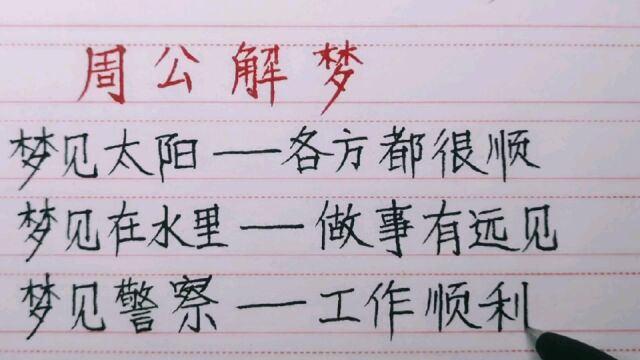 周公解梦
梦见太阳——各方都很顺
梦见在水里——做事有远见
梦见警察——工作顺利